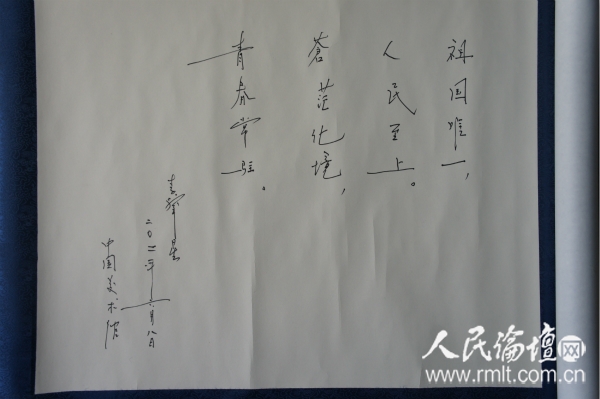 祖国唯一，
人民至上。
蒼茫化境，
青春常驻。
年六月八日
中国美术馆
人民論壇网
www.rmlt.com.cn